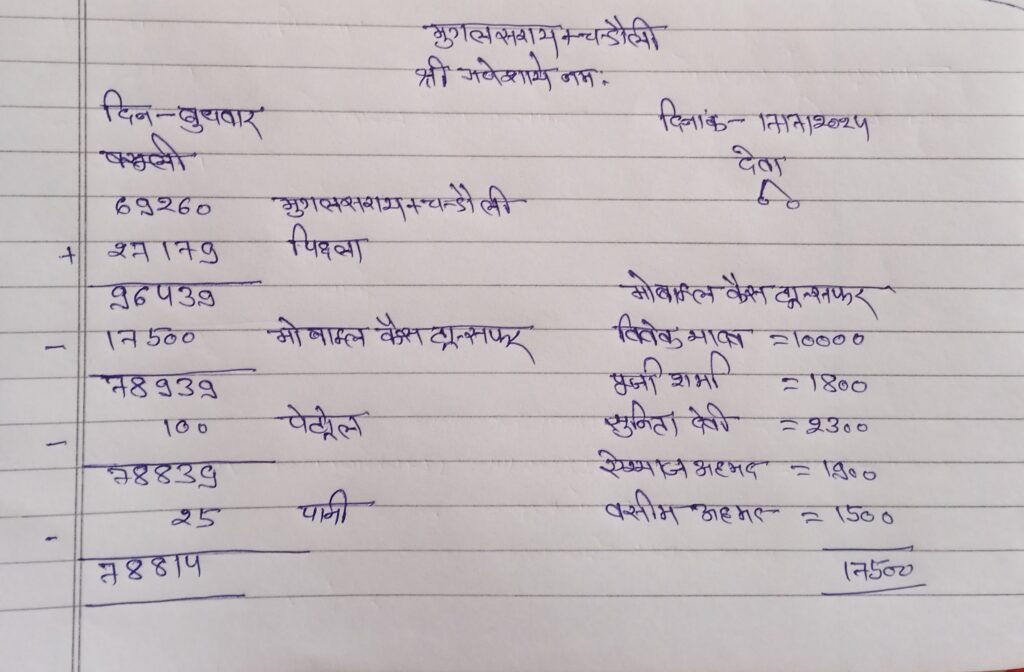 मुगलसराय + चन्दौली
श्री गणेशाये नमः
दिन - बुधवार दिनांक - 17/7/2024
वसूली देवा
69260 मुगलसराय + चन्दौली
+ 27179 पिछला
96439 मोबाइल कैस ट्रान्सफर
- 17500 मोबाइल कैस ट्रान्सफर विवेक = 10000
78939 शर्मा = 1800
- 100 पेट्रोल सुनिता देवी = 2300
78839 अहमद = 1900
- 25 पानी वसीम अहमद = 1500
78814 17500